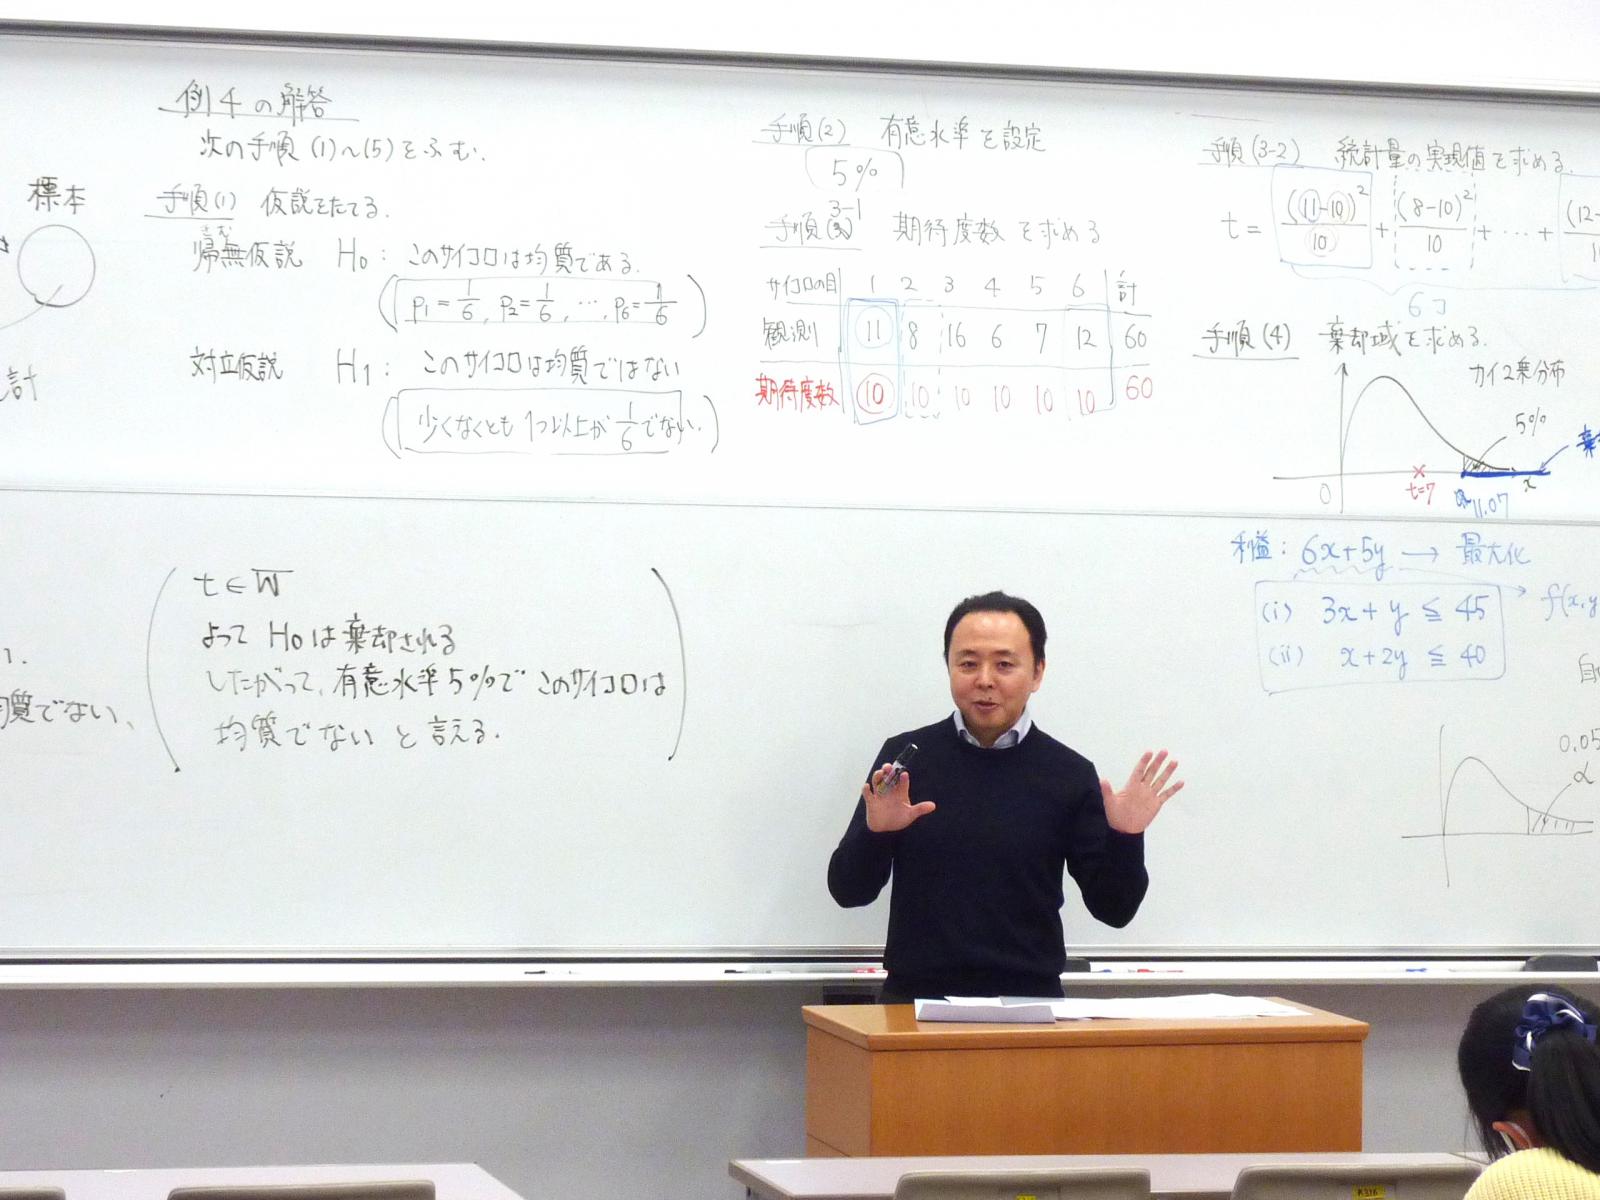 標本
計
例4の解答
次の手順(1)~(5)をふむ.
手順(1) 仮説をたてる.
きむ
帰無仮説 H₀: このサイコロは均質である.
(p₁=1/6, p₂=1/6, …, p₆=1/6)
対立仮説 H₁: このサイコロは均質ではない
(少くなくとも1つ以上が1/6でない.)
手順(2) 有意水準を設定
5%
3-1
手順 期待度数を求める
サイコロの目 1 2 3 4 5 6 計
観測 11 8 16 6 7 12 60
期待度数 10 10 10 10 10 10 60
手順(3-2) 統計量の実現値を求める.
t = (11-10)²/10 + (8-10)²/10 + … + (12-
6コ
手順(4) 棄却域を求める.
カイ2乗分布
5%
0
t=7
11.07
x
t∈W
よって H₀は棄却される
したがって、有意水準5%で このサイコロは
均質でない と言える.
質でない、
利益: 6x+5y → 最大化
(i) 3x+y ≦ 45
f(x,y
(ii) x+2y ≦ 40
0.05
α